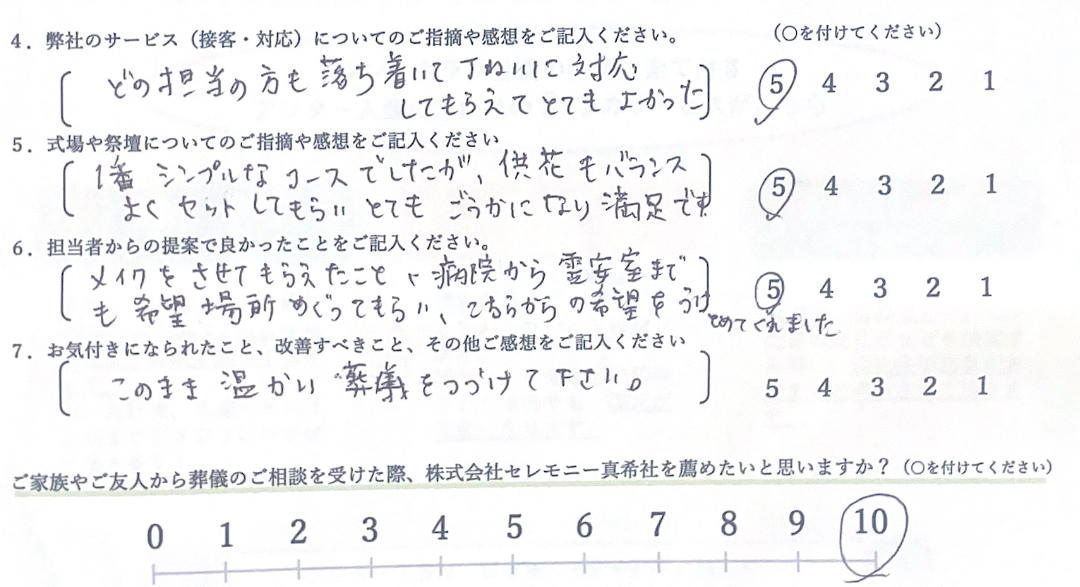 4．弊社のサービス（接客・対応）についてのご指摘や感想をご記入ください。 （○を付けてください）
どの担当の方も落ち着いて丁ねいに対応 5 4 3 2 1
してもらえてとてもよかった
5．式場や祭壇についてのご指摘や感想をご記入ください
1番シンプルなコースでしたが、供花もバランス 5 4 3 2 1
よくセットしてもらいとてもごうかになり満足です
6．担当者からの提案で良かったことをご記入ください。
メイクをさせてもらえたこと、病院から霊安室まで 5 4 3 2 1
も希望場所めぐってもらい、こちらからの希望をうけ
とめてくれました
7．お気付きになられたこと、改善すべきこと、その他ご感想をご記入ください
このまま温かい葬儀をつづけて下さい。 5 4 3 2 1
ご家族やご友人から葬儀のご相談を受けた際、株式会社セレモニー真希社を薦めたいと思いますか？（○を付けてください）
0 1 2 3 4 5 6 7 8 9 10